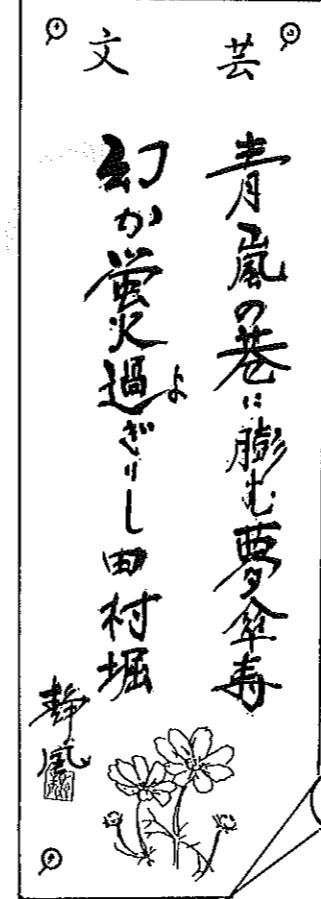 文芸
青嵐の巷に膨む夢傘寿
幻か蛍火過ぎりし田村堀
よ
静風